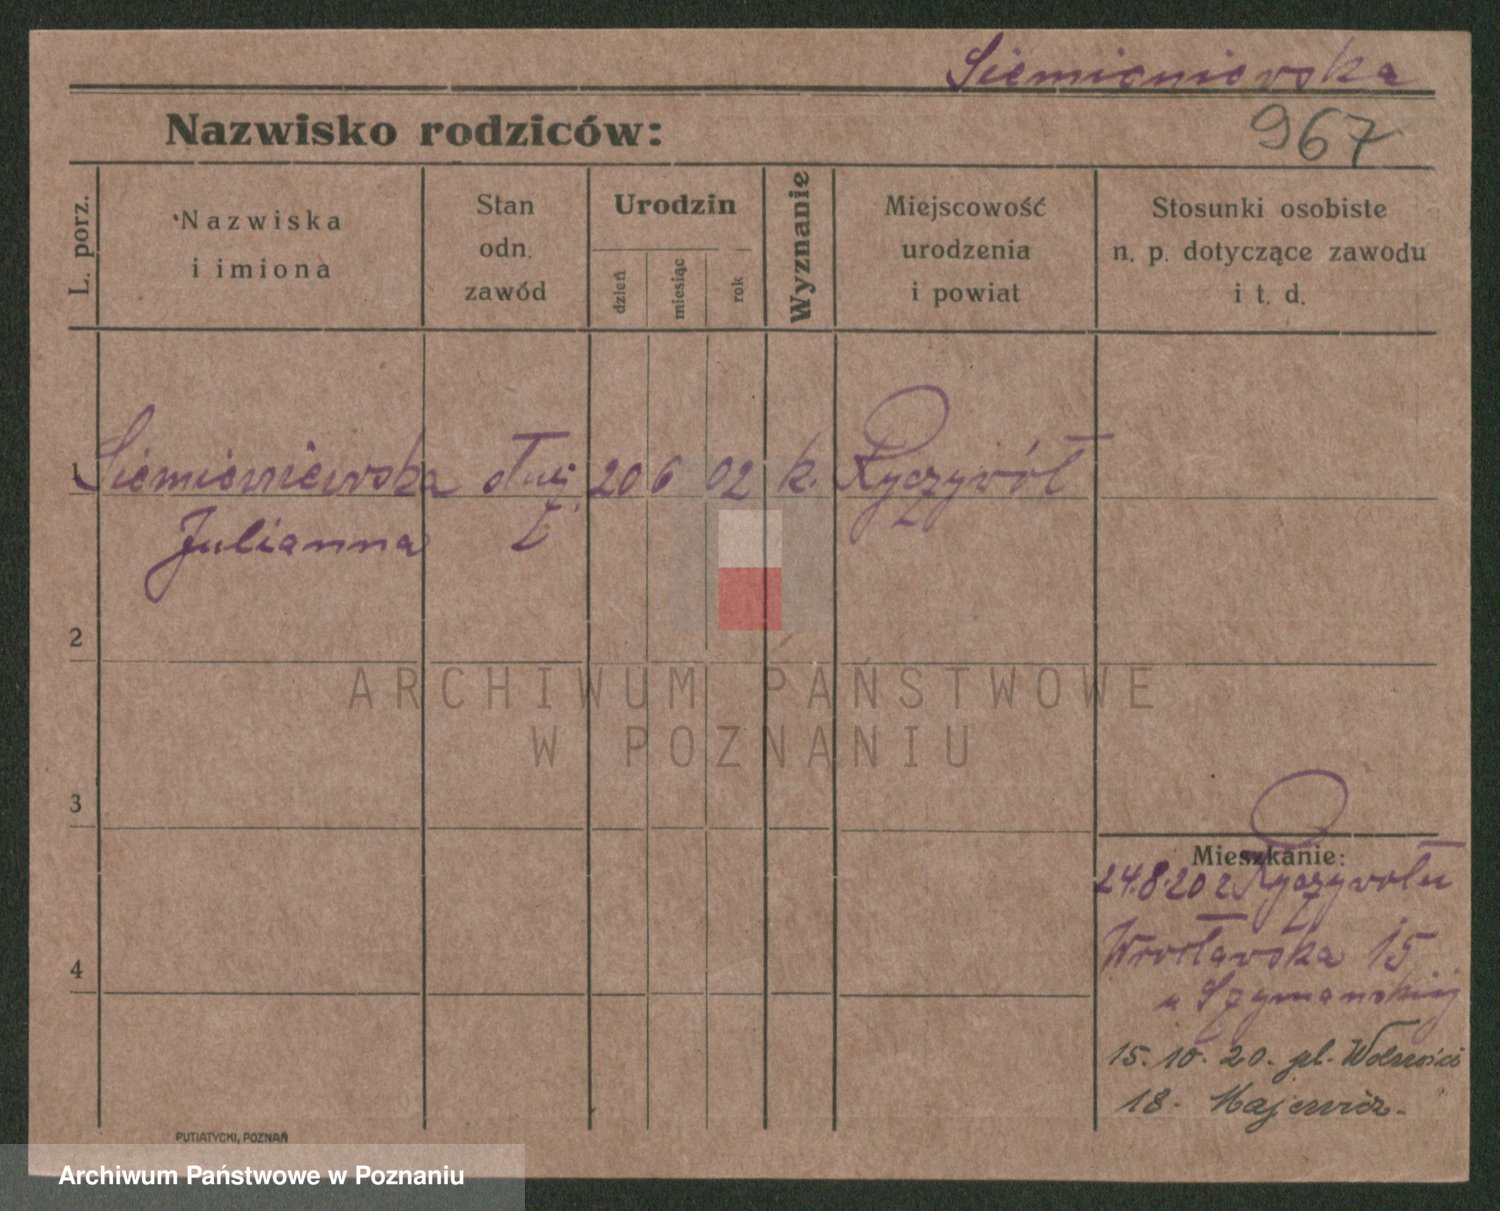 Siemieniewska
Nazwisko rodziców:
967
L. porz.
Nazwiska
i imiona
Stan
odn.
zawód
Urodzin
dzień
miesiąc
rok
Wyznanie
Miejscowość
urodzenia
i powiat
Stosunki osobiste
n. p. dotyczące zawodu
i t. d.
1 Siemieniewska służ. 20 6 02 k. Ryczywół
Julianna
2
ARCHIWUM PAŃSTWOWE
W POZNANIU
3
4
Mieszkanie:
24.8.20 z Ryczywołu
Wrocławska 15
u Szymańskiej
15. 10. 20. pl. Wolności
18. Majewicz.
PUTIATYCKI, POZNAŃ
Archiwum Państwowe w Poznaniu